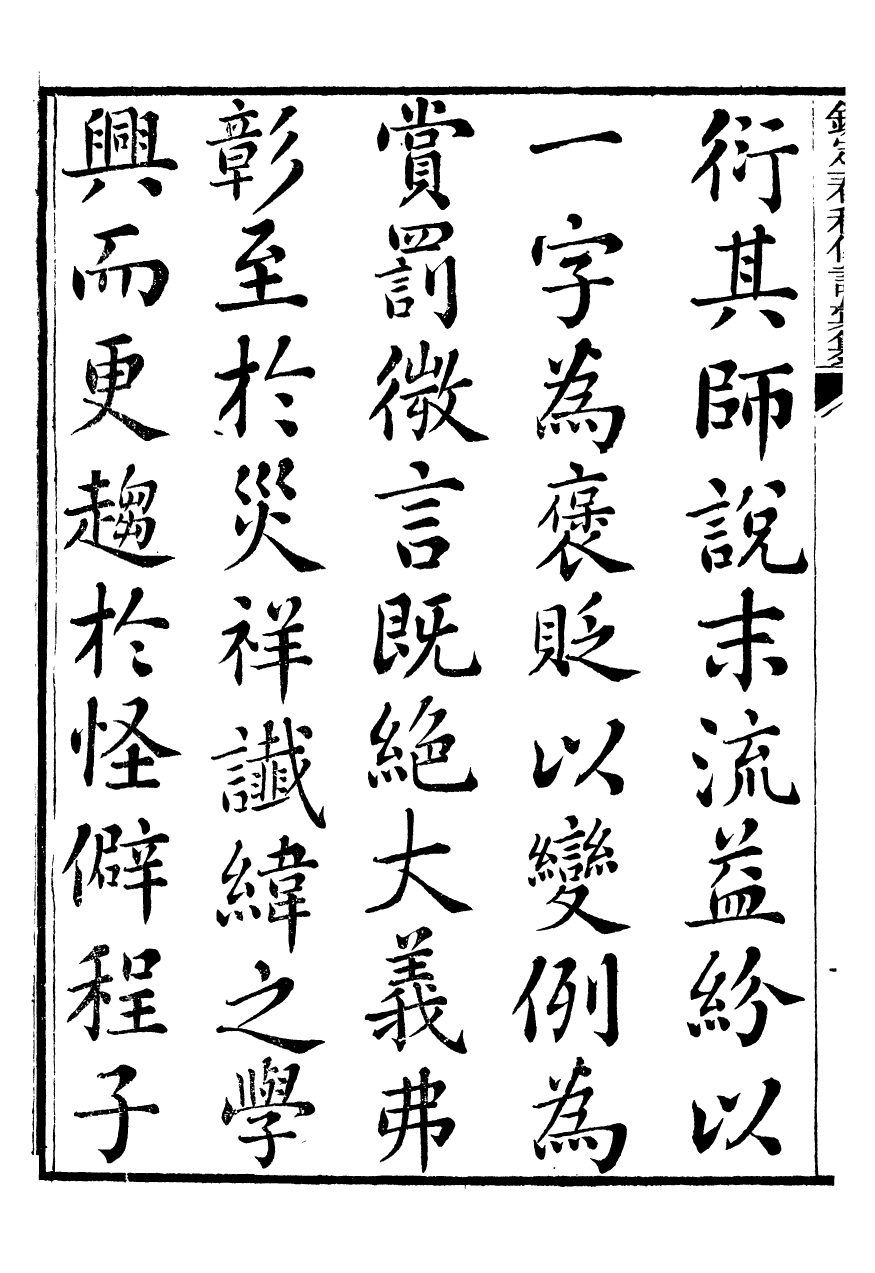 衍其師說末流益紛以
一字為褒貶以變例為
賞罰微言既絕大義弗
彰至於災祥讖緯之學
興而更趨於怪僻程子